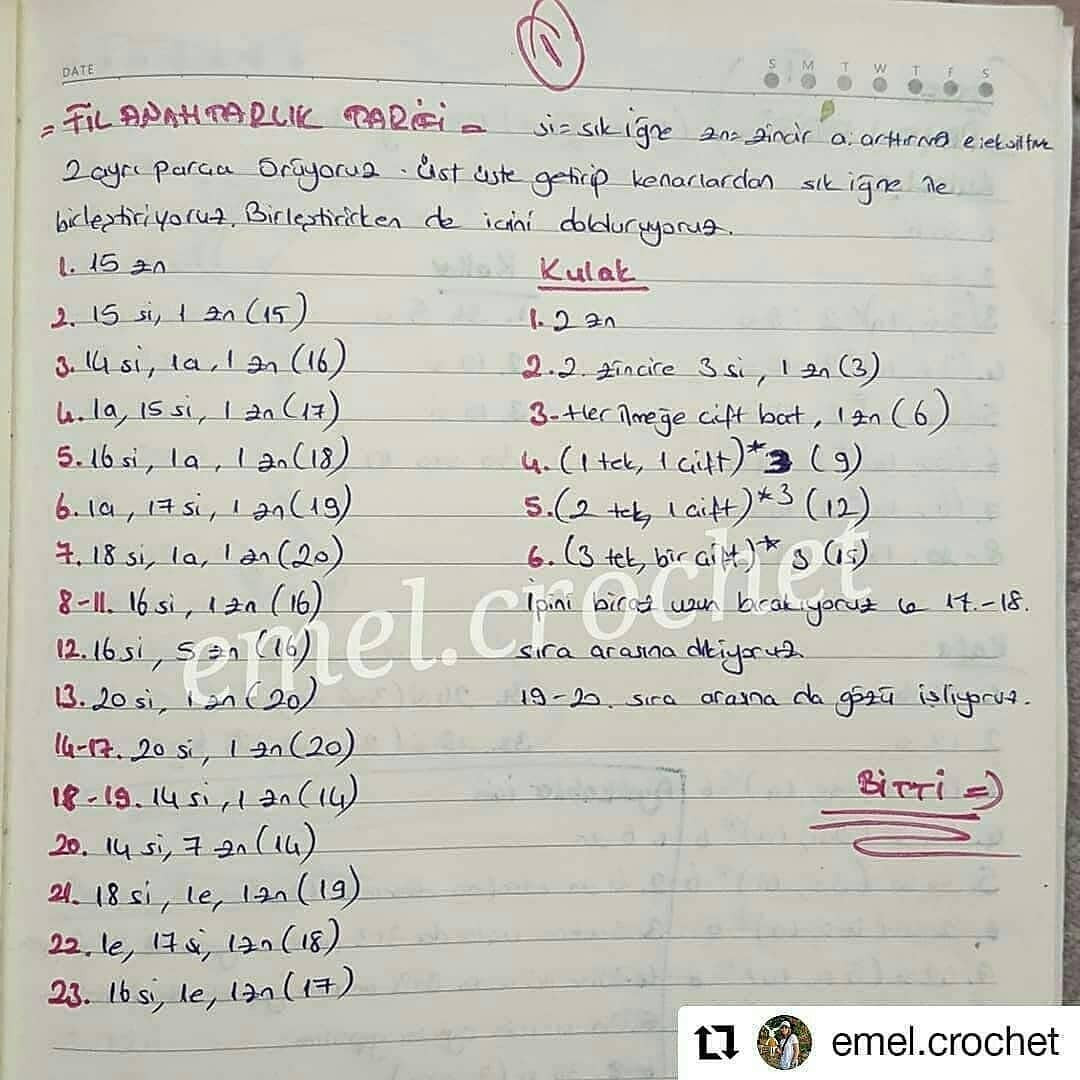 1
DATE
S M T W T F S
= FİL ANAHTARLIK TARİFİ = si= sık iğne zn= zincir a: arttırma e: eksiltme
2 ayrı parça örüyoruz. Üst üste getirip kenarlardan sık iğne ile
birleştiriyoruz. Birleştirirken de içini dolduruyoruz.
1. 15 zn
2. 15 si, 1 zn (15)
3. 14 si, 1a, 1 zn (16)
4. 1a, 15 si, 1 zn (17)
5. 16 si, 1a, 1 zn (18)
6. 1a, 17 si, 1 zn (19)
7. 18 si, 1a, 1 zn (20)
8-11. 16 si, 1 zn (16)
12. 16 si, 5 zn (16)
13. 20 si, 1 zn (20)
14-17. 20 si, 1 zn (20)
18-19. 14 si, 1 zn (14)
20. 14 si, 7 zn (14)
21. 18 si, 1e, 1 zn (19)
22. 1e, 17 si, 1 zn (18)
23. 16 si, 1e, 1 zn (17)
Kulak
1. 2 zn
2. 2. zincire 3 si, 1 zn (3)
3- Her ilmeğe çift bat, 1 zn (6)
4. (1 tek, 1 çift)*3 (9)
5. (2 tek, 1 çift)*3 (12)
6. (3 tek, bir çift)* 3 (15)
İpini biraz uzun bırakıyoruz ve 17.-18.
sıra arasına dikiyoruz.
19-20. sıra arasına da gözü işliyoruz.
BİTTİ =)
emel.crochet
emel.crochet